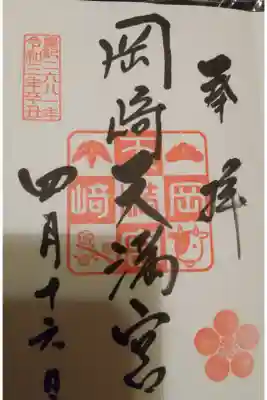 奉拝
岡崎天満宮
四月十六日
皇紀二六八一年
令和三年辛丑
岡
崎